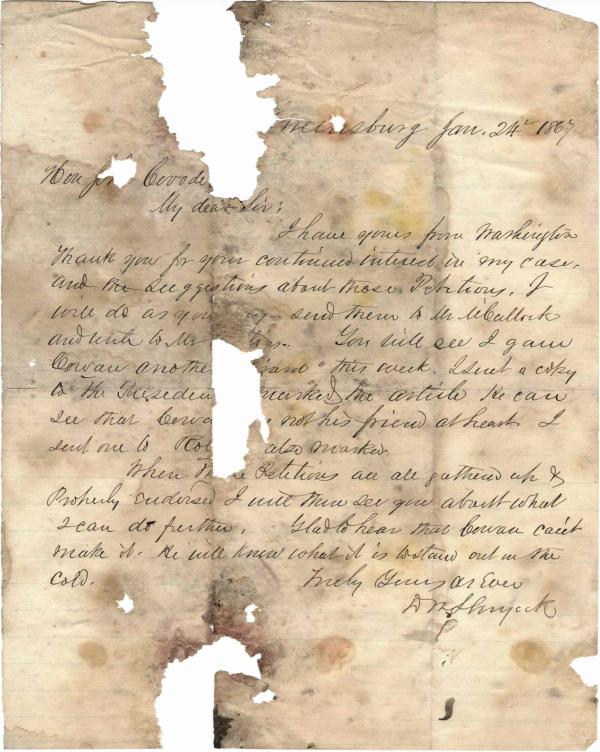 eensburg Jan. 24" 1867
Hon Covode
My dear Sir:
I have yours from Washington
Thank you for your continued interest in my case,
and the suggestions about those Petitions. I
will do as you send them to Mr McCulloch
and write to Mr You will see I gave
Cowan anothe this week. I sent a copy
to the Presiden marked the article He can
see that Cowa not his friend at heart. I
sent one to also marked.
When Petitions are all gathered up &
Properly endorsed I will then see you about what
I can do further. Glad to hear that Cowan can't
make it. He will know what it is to stand out in the
cold. Truly Yours as Ever
Shryock